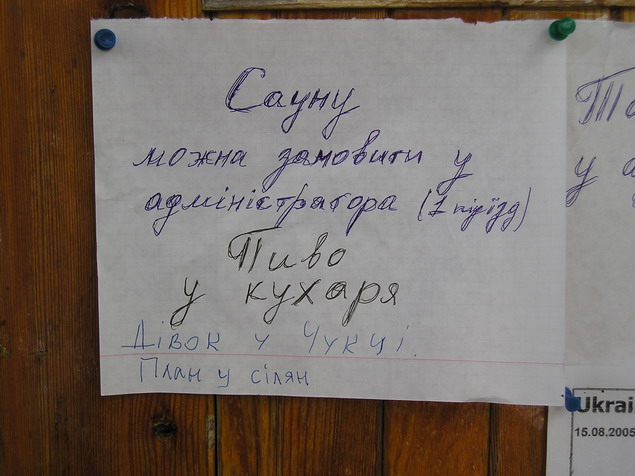 Сауну
можна замовити у
адміністратора (1 під'їзд)
Пиво
у кухаря
Дівок у Чукчі.
План у сілян
у
Ukrai
15.08.2005